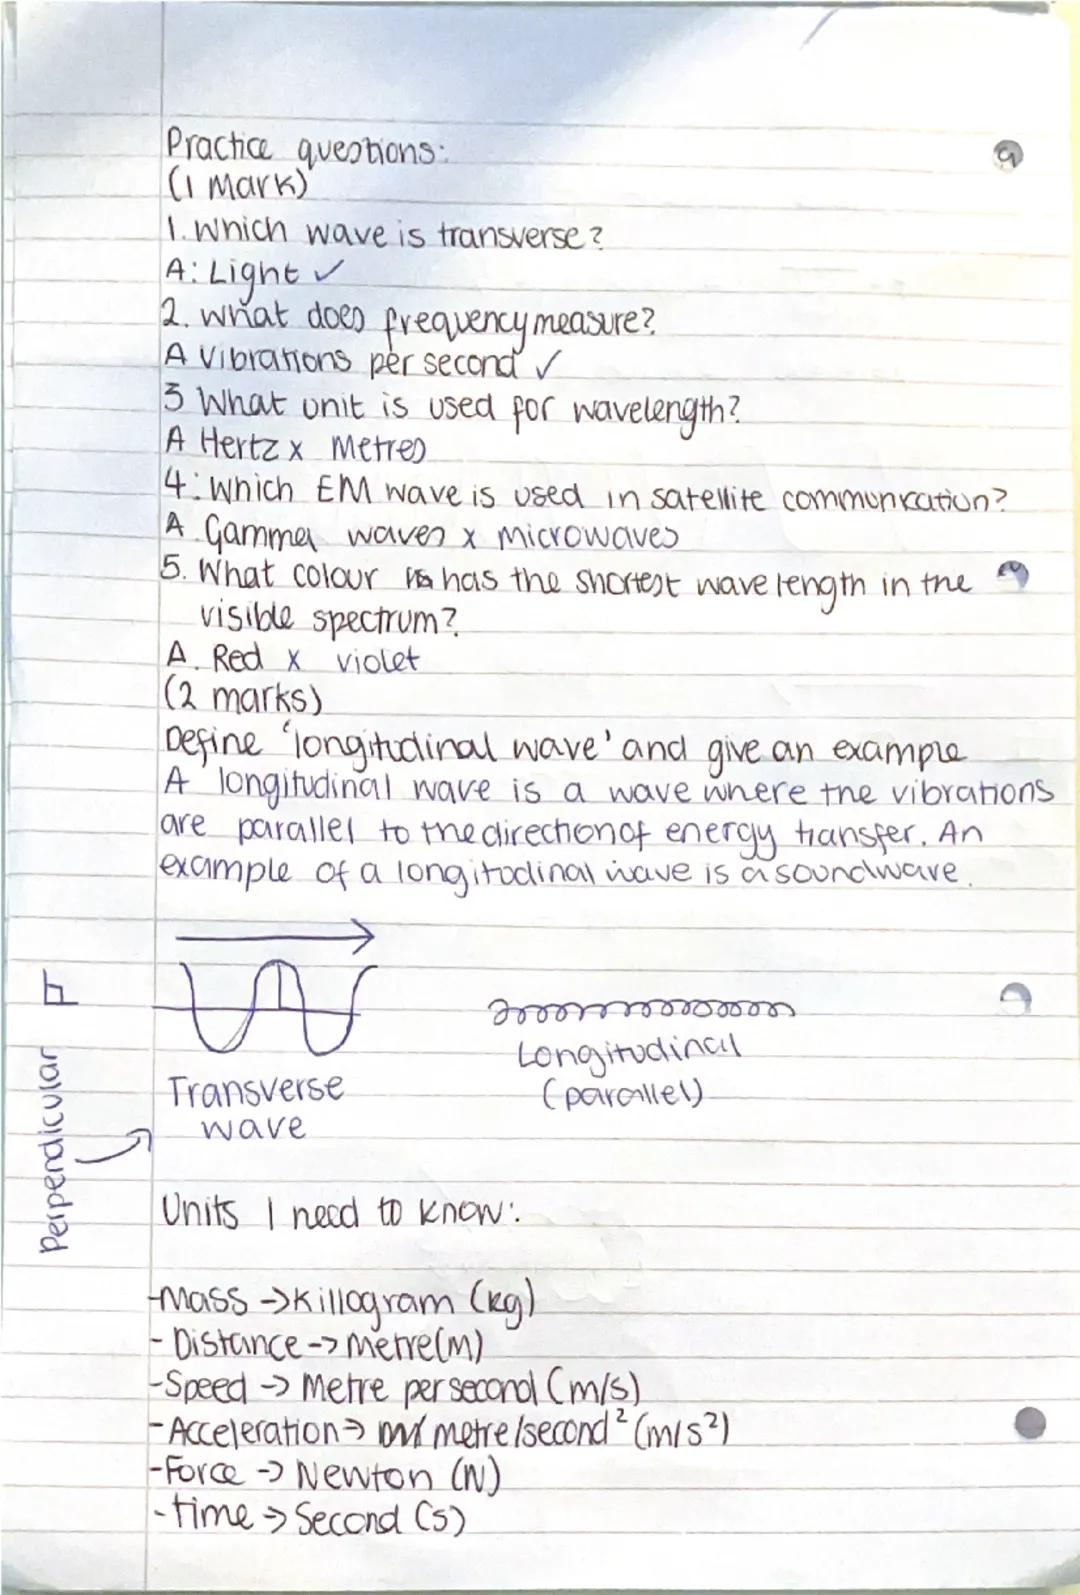 Practice questions:
(1 Mark)
1. Which wave is transverse?
A: Light ✓
2. what does frequency measure?
A Vibrations per second ✓
3 What unit is used for wavelength?
A Hertz x Metres
4. Which EM wave is used in satellite communication?
A. Gamma waves x Microwaves
5. What colour has the shortest wavelength in the
visible spectrum?
A. Red x violet
(2 marks)
Define 'longitudinal wave' and give an example
A longitudinal wave is a wave where the vibrations
are parallel to the direction of energy transfer. An
example of a longitudinal wave is a soundwave.
Perpendicular
Transverse
wave
Longitudinal
(parallel)
Units I need to know:
-Mass -> Killogram (kg)
- Distance -> Metre (m)
-Speed -> Metre per second (m/s)
-Acceleration -> metre/second² (m/s²)
-Force -> Newton (N)
-time -> Second (s)